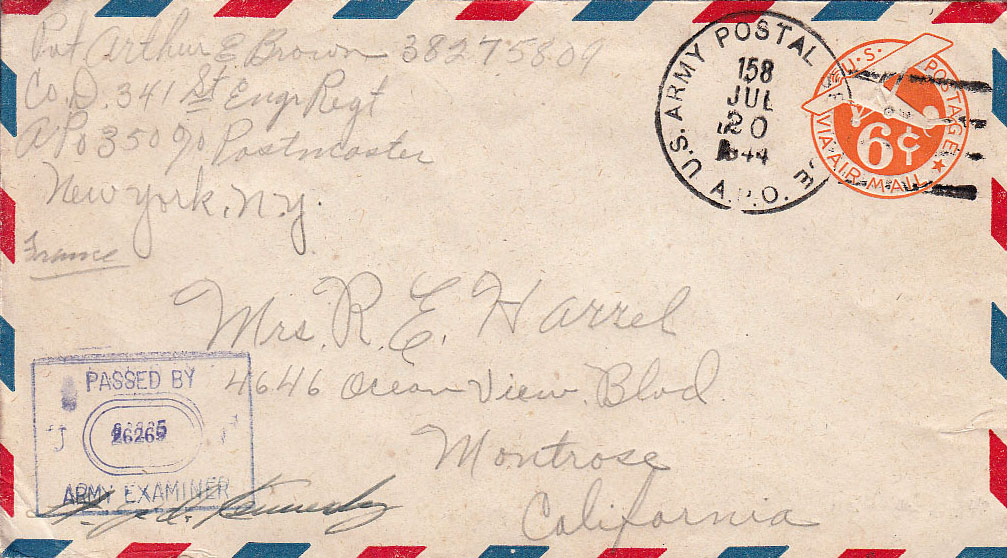 Pvt Arthur E Brown 38275809
Co. D. 341 St Engr Regt
APO 350 c/o Postmaster
New York, N.Y.
France
U.S. ARMY POSTAL
158
JUL
20
1944
A.P.O.
U.S. POSTAGE
6¢
VIA·AIR·MAIL
Mrs. R. E. Harrel
4646 Ocean View. Blvd.
Montrose
California
PASSED BY
ARMY EXAMINER
Kennedy